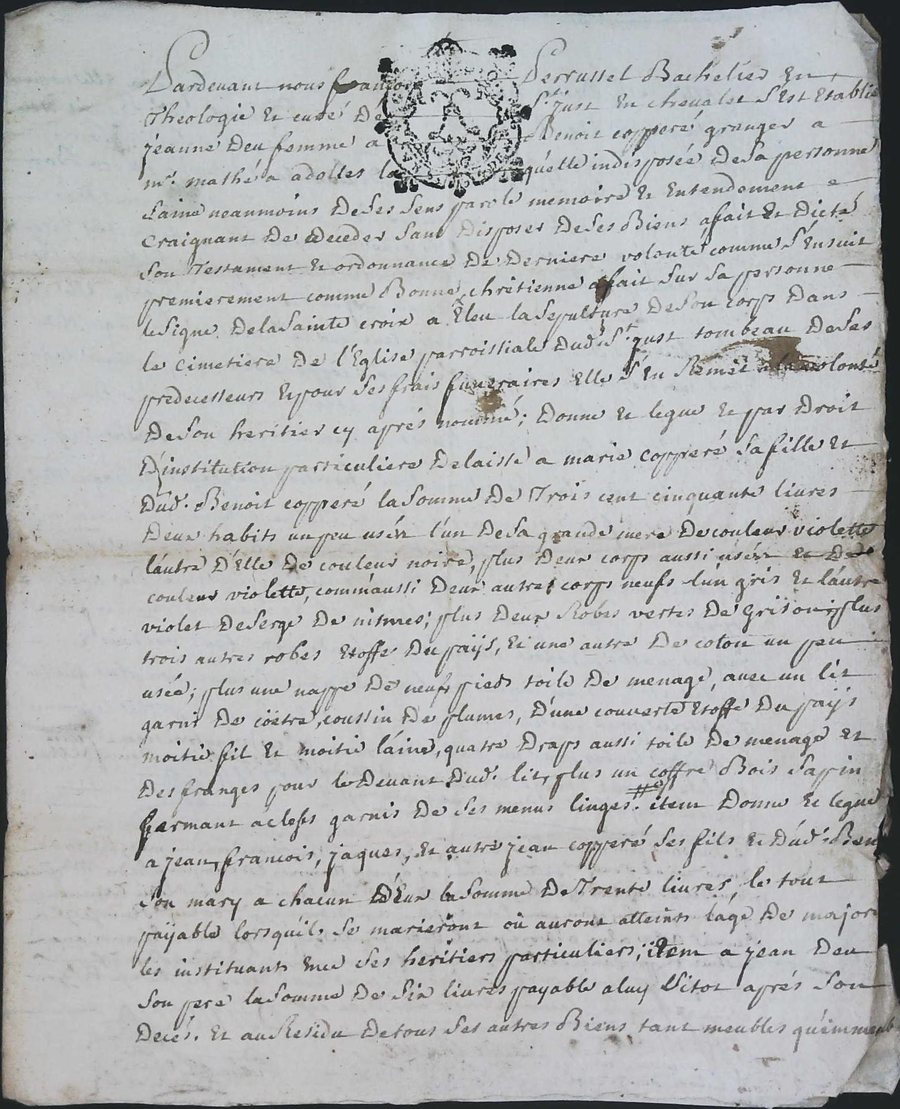 Pardevant nous françois Perrussel Bachelier En
theologie Et curé De St. just En chevalet s'Est Etablie
jeanne Deu femme a Benoit copperé granger a
mr. mathé a adolles laquelle indisposée De sa personne
saine neanmoins De ses sens parole memoire Et Entendement
craignant De deceder sans Disposer De ses Biens a fait Et Dicté
son Testament Et ordonnance De Derniere volonté comme s'Ensuit
premierement comme Bonne chrétienne a fait sur sa personne
le signe De la sainte croix a Eleu la sepulture De son corps Dans
le cimetiere De l'Eglise parroissiale Dud. St. just tombeau De ses
predecesseurs Et pour ses frais funeraires Elle s'En Remet a la volonté
De son heritier cy aprés nommé; Donne Et legue Et par Droit
D'institution particuliere Delaisse a marie copperé sa fille Et
Dud. Benoit copperé la somme De Trois cent cinquante livres
Deux habits un peu usés l'un De sa grande mere De couleur violette
lautre D'Elle De couleur noire, plus Deux corps aussi usés Et De
couleur violette, comm'aussi Deux autres corps neufs l'un gris Et lautre
violet De serge De nimes; plus Deux Robes vertes De grison; plus
trois autres robes Etoffe Du païs, Et une autre De coton un peu
usée; plus une nappe De neuf pieds toile De menage, avec un lit
garni De coëtre, coussin De plumes, D'une couverte Etoffe Du païs
moitié fil Et moitié laine, quatre Draps aussi toile De menage Et
Des franges pour le Devant Dud. lit, plus un coffre Bois sapin
fermant a clefs garnis De ses menus linges. item Donne Et legue
a jean, francois, jaques, Et autre jean copperé ses fils Et Dud. Ben
son mary a chacun D'Eux la somme De Trente livres, le tout
payable lorsqu'ils se marieront où auront atteints l'âge De major
les instituants ses heritiers particuliers; item a jean Deu
son pere la somme De six livres payable a luy sitot aprés son
Decés. Et au Residu De tous ses autres Biens tant meubles qu'immeub